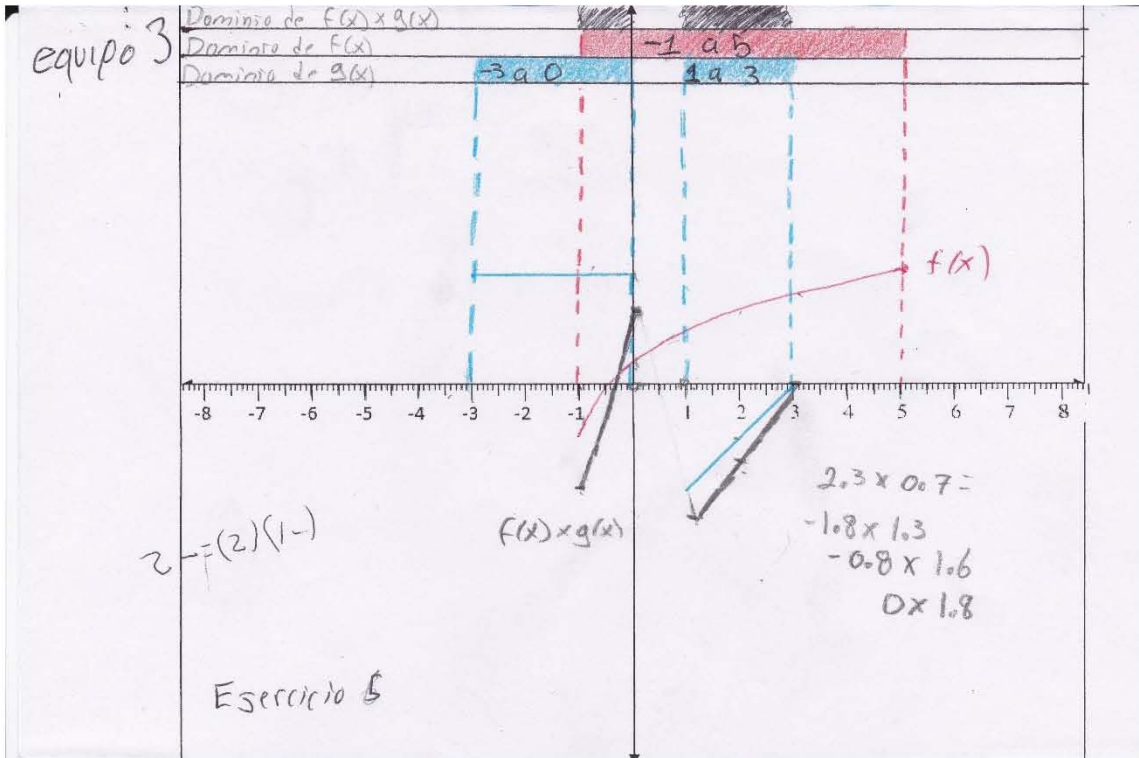 equipo 3
Dominio de f(x) x g(x)
Dominio de f(x)
-1 a 5
Dominio de g(x)
-3 a 0
1 a 3
f(x)
-8 -7 -6 -5 -4 -3 -2 -1 1 2 3 4 5 6 7 8
f(x) x g(x)
2.3 x 0.7 =
-1.8 x 1.3
-0.8 x 1.6
0 x 1.8
2 - = (2)(1-)
Esercicio 5